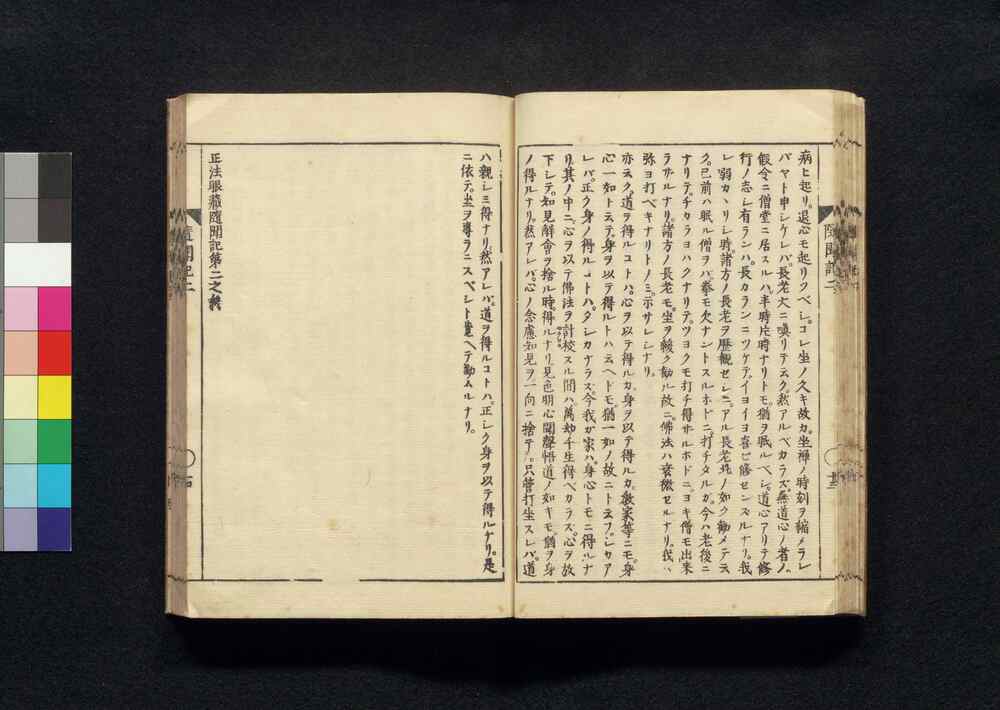 病ヒ起リ。退心モ起リツベシ。コレ坐ノ久キ故カ。坐禅ノ時刻ヲ縮メラレ
バヤト申シケレバ。長老大ニ嗔リテ云ク。然アルベカラズ。無道心ノ者ノ。
假令ニ僧堂ニ居スルハ。半時片時ナリトモ。猶ヲ眠ルベシ。道心アリテ修
行ノ志シ有ランハ。長カランニツケテ。イヨイヨ喜ビ修センズルナリ。我
レ弱カヽリシ時。諸方ノ長老ヲ歷觀セシニ。アル長老如此ノ如ク勧メテ云
ク。已前ハ眠ル僧ヲバ。拳モ欠ナントスルホドニ。打チタルガ。今ハ老後ニ
ナリテ。チカラヨハクナリテ。ツヨクモ打チ得サルホドニ。ヨキ僧モ出來
ラザルナリ。諸方ノ長老モ。坐ヲ緩ク勧ル故ニ。佛法ハ衰微セルナリ。我ハ
弥ヨ打ベキナリトノミ。示サレシナリ。
亦云ク。道ヲ得ルコトハ。心ヲ以テ得ルカ。身ヲ以テ得ルカ。教家等ニモ。身
心一如ト云テ。身ヲ以テ得ルトハ云ヘドモ。猶一如ノ故ニトヱフ。シカア
レバ。正ク身ノ得ルコトハ。タシカナラズ。今我ガ家ハ。身心トモニ得ルナ
リ。其ノ中ニ。心ヲ以テ佛法ヲ計校スル間ハ。萬劫千生得ベカラズ。心ヲ放
下シテ。知見解會ヲ捨ル時得ルナリ。見色明心聞聲悟道ノ如キモ。猶ヲ身
ノ得ルナリ。然アレバ。心ノ念慮知見ヲ一向ニ捨テヽ。只管打坐スレバ。道
隨聞記二
ハ親シミ得ナリ。然アレバ。道ヲ得ルコトハ。正シク身ヲ以テ得ルナリ。是
ニ依テ。坐ヲ專ラニスベシト覚ヘテ勧ムルナリ。
正法眼藏隨聞記第二之終
隨聞記二